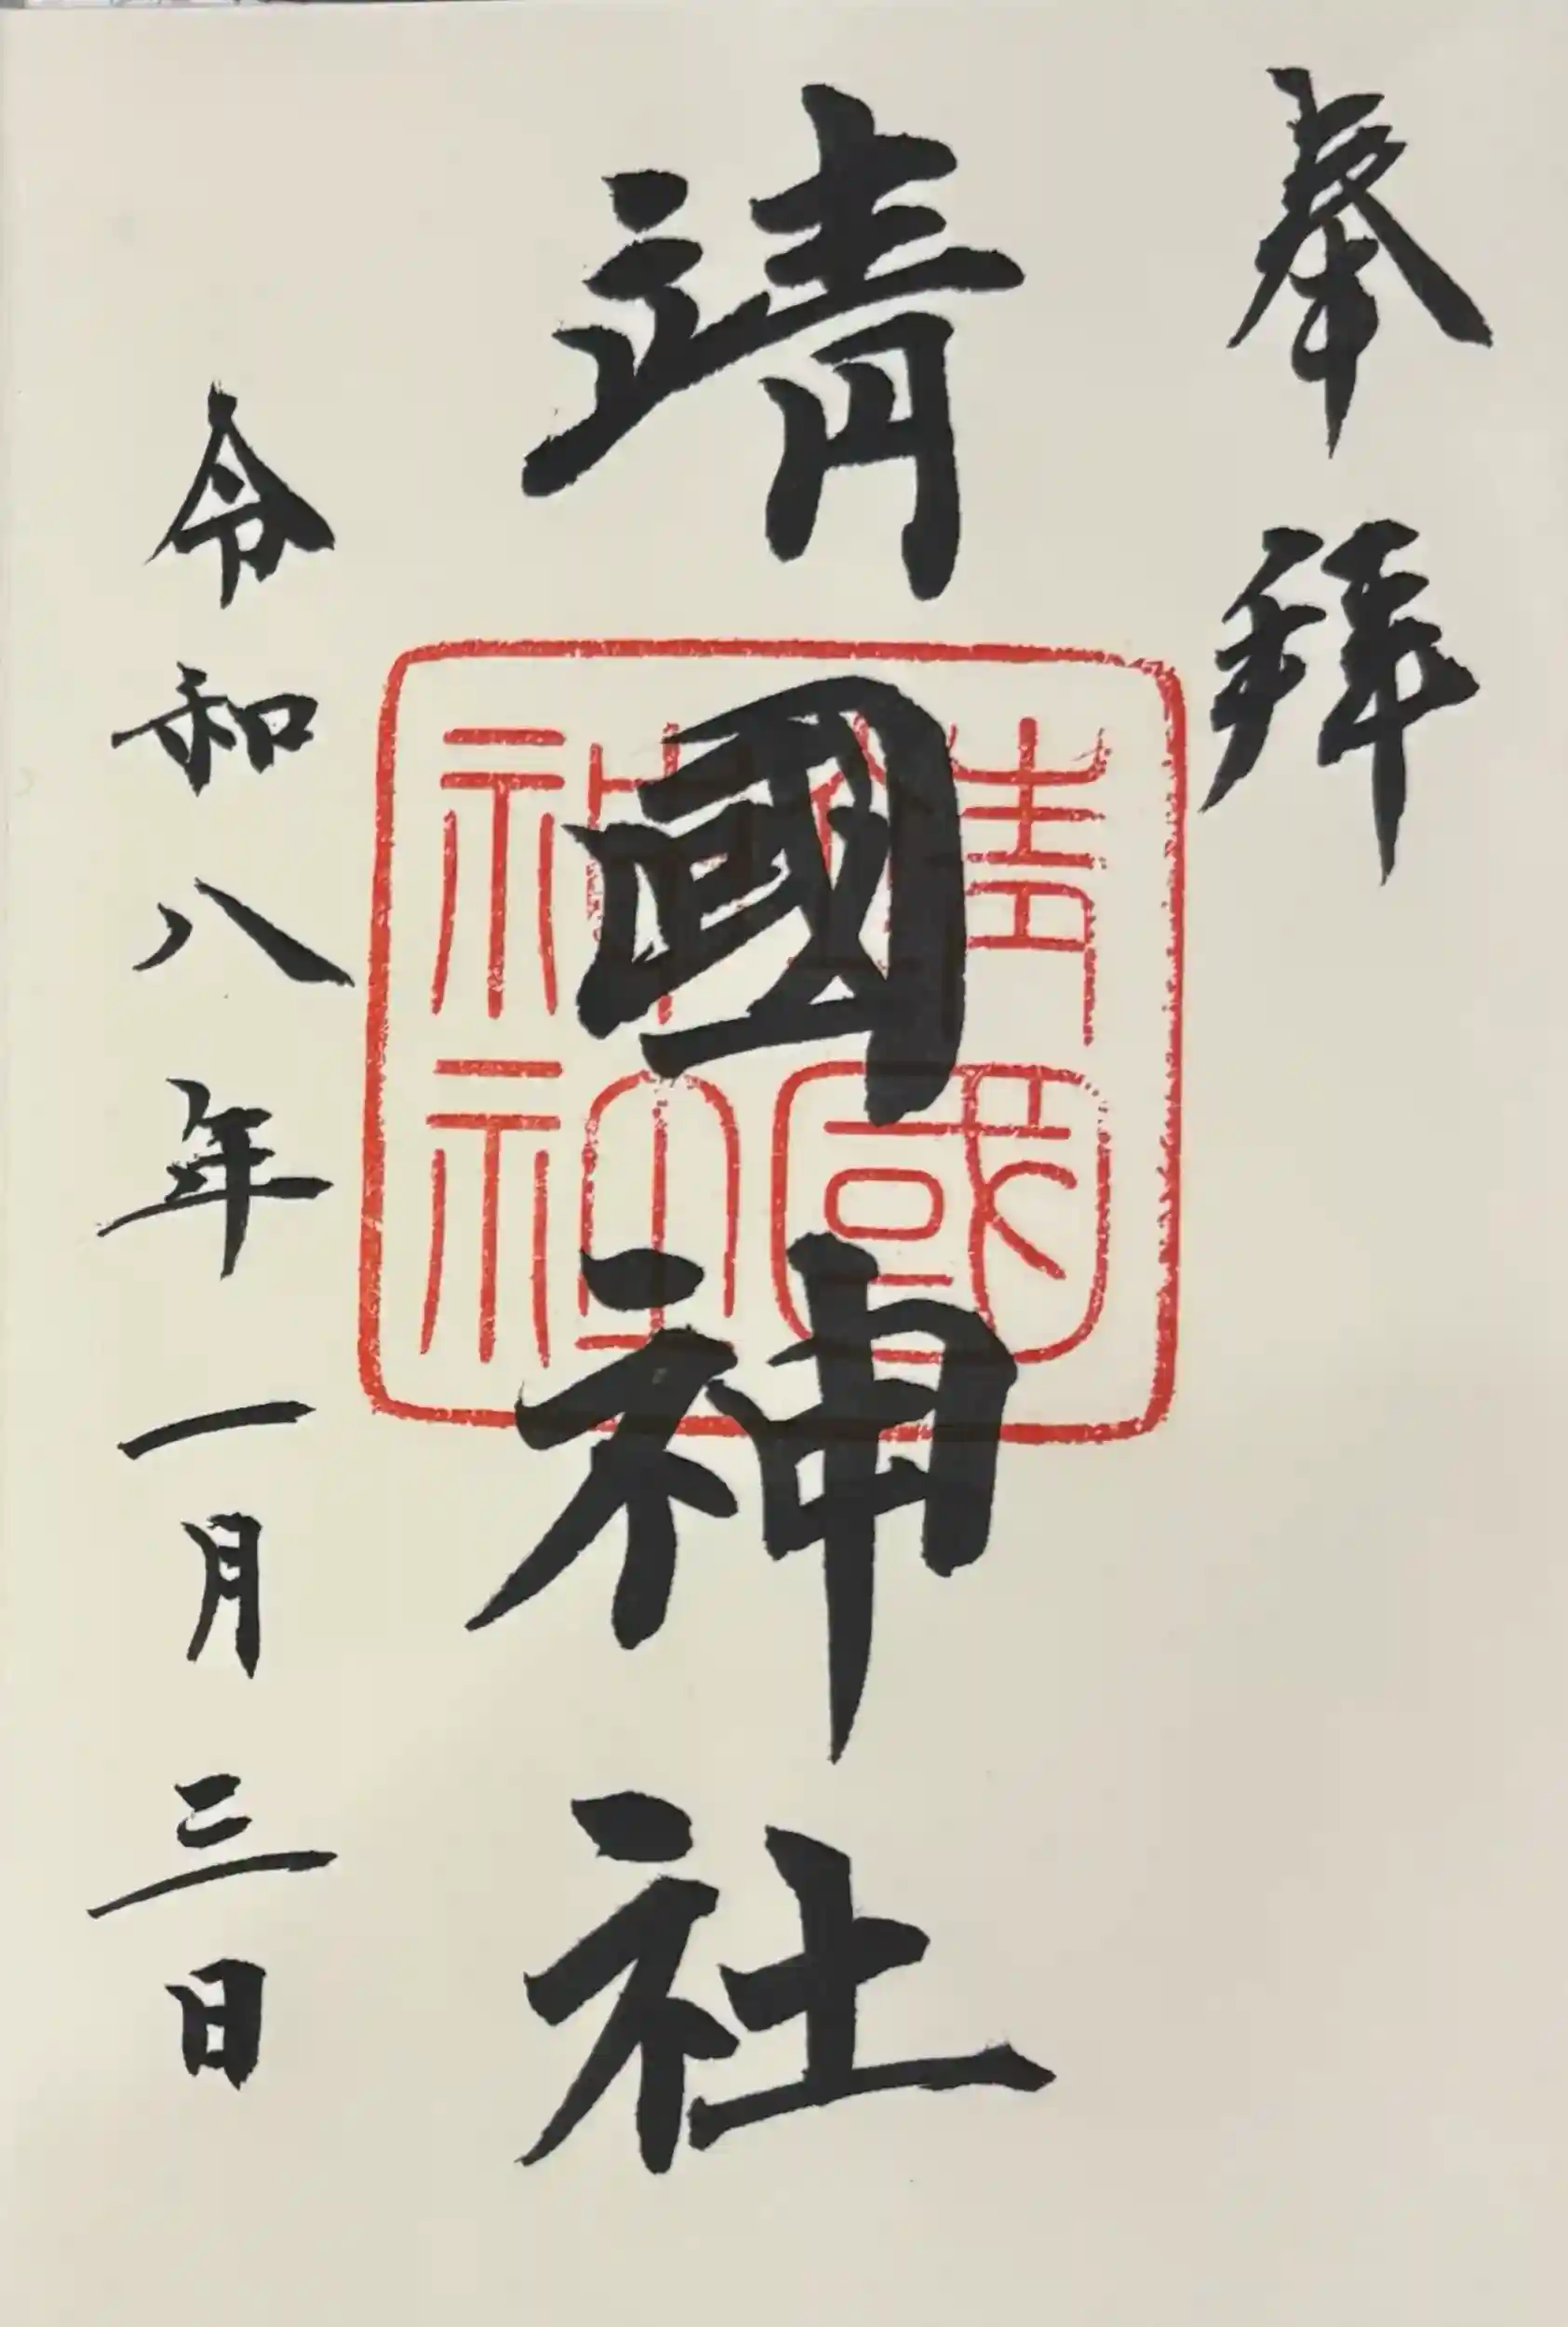 奉拜
靖國神社
靖國
神社
令和八年一月三日